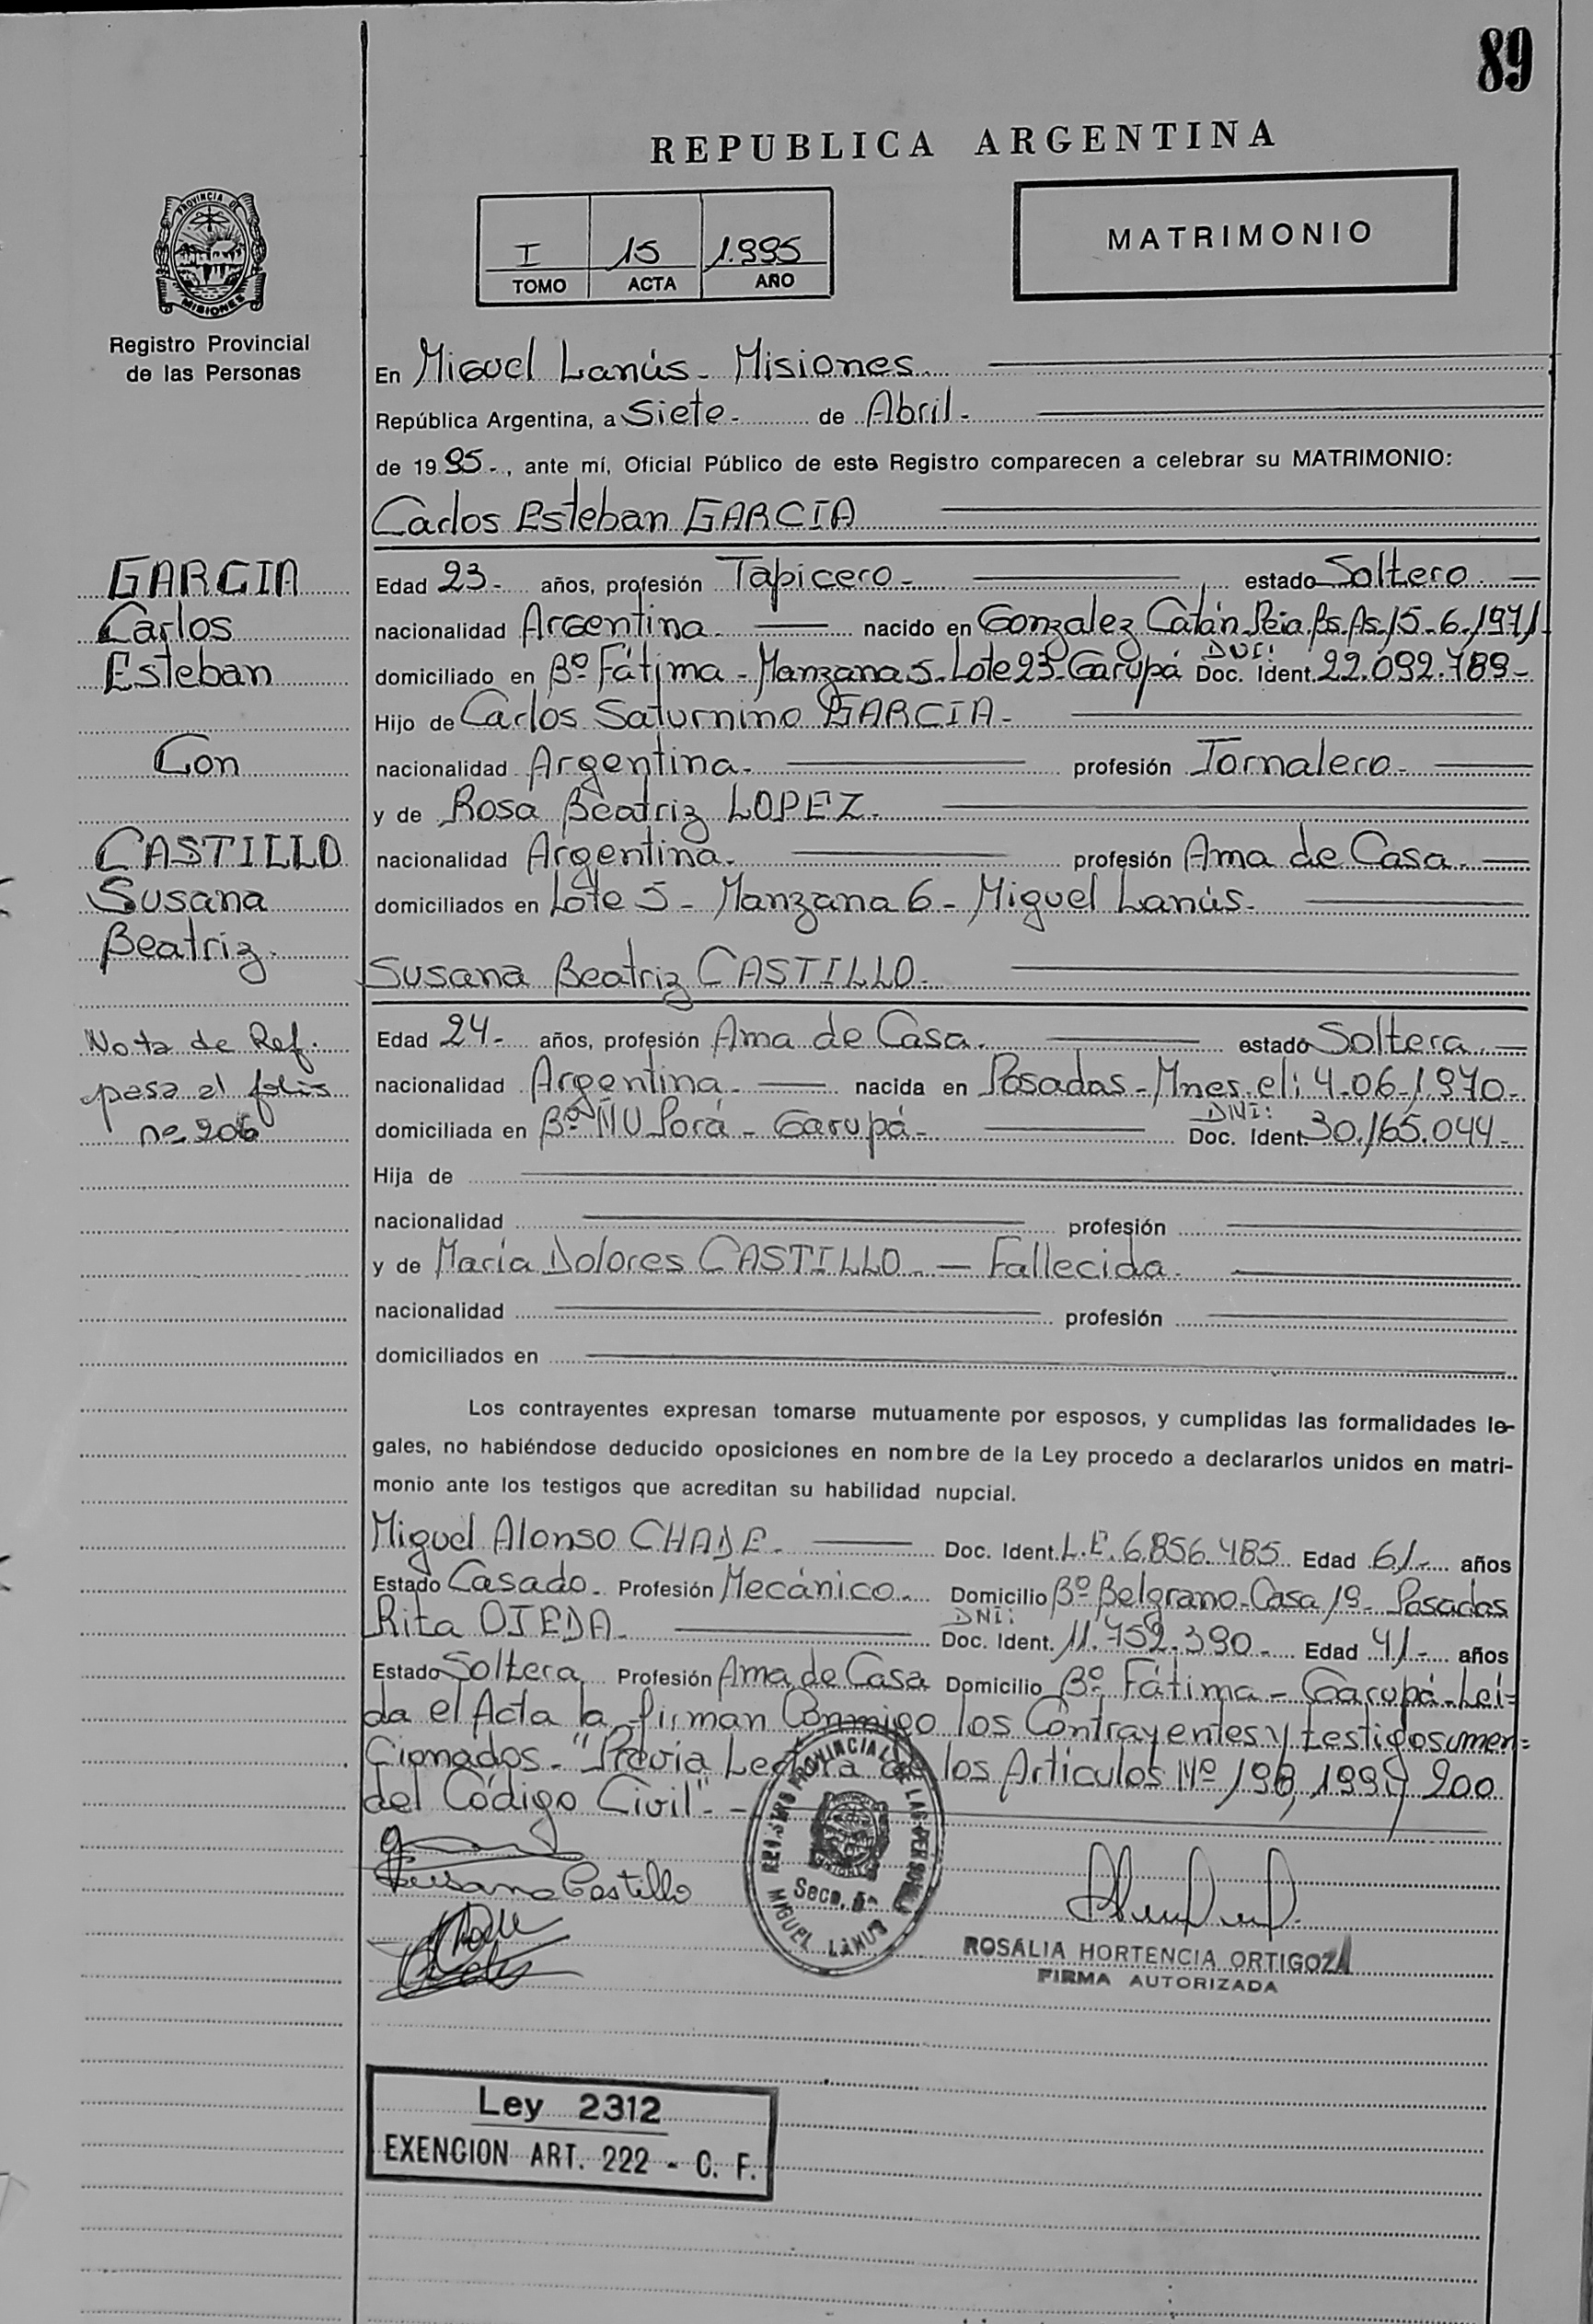 89
REPUBLICA ARGENTINA
PROVINCIA DE
MISIONES
Registro Provincial
de las Personas
I 15 1.995
TOMO ACTA AÑO
MATRIMONIO
En Miguel Lanús - Misiones.
República Argentina, a Siete - de Abril -
de 1995 -, ante mí, Oficial Público de este Registro comparecen a celebrar su MATRIMONIO:
Carlos Esteban GARCIA
GARCIA
Carlos
Esteban
Con
CASTILLO
Susana
Beatriz.
Nota de Ref.
pasa al folio
nº 206
Edad 23 - años, profesión Tapicero - estado Soltero
nacionalidad Argentina - nacido en Gonzalez Catán - Pcia Bs. As. 15-6-1971
domiciliado en Bº Fátima - Manzana 5 - Lote 23 - Garupá DNI: Doc. Ident. 22.092.789 -
Hijo de Carlos Saturnino GARCIA -
nacionalidad Argentina - profesión Jornalero -
y de Rosa Beatriz LOPEZ -
nacionalidad Argentina - profesión Ama de Casa -
domiciliados en Lote 5 - Manzana 6 - Miguel Lanús -
Susana Beatriz CASTILLO -
Edad 24 - años, profesión Ama de Casa. estado Soltera
nacionalidad Argentina - nacida en Posadas - Mnes. el: 4-06-1.970 -
domiciliada en Bº ÑU Porá - Garupá - DNI: Doc. Ident. 30.165.044 -
Hija de
nacionalidad profesión
y de María Dolores CASTILLO - Fallecida.
nacionalidad profesión
domiciliados en
Los contrayentes expresan tomarse mutuamente por esposos, y cumplidas las formalidades le-
gales, no habiéndose deducido oposiciones en nombre de la Ley procedo a declararlos unidos en matri-
monio ante los testigos que acreditan su habilidad nupcial.
Miguel Alonso CHADE - Doc. Ident. L.E. 6.856.485 Edad 61 - años
Estado Casado - Profesión Mecánico - Domicilio Bº Belgrano - Casa 19 - Posadas
Rita OJEDA - DNI: Doc. Ident. 11.752.390 - Edad 41 - años
Estado Soltera Profesión Ama de Casa Domicilio Bº Fátima - Garupá - Leí-
da el Acta la firman Conmigo los Contrayentes y testigos men-
cionados - "Previa Lectura de los Articulos Nº 198, 199 y 200
del Código Civil" -
Susana Castillo
REGISTRO PROVINCIAL DE LAS PERSONAS
Secc. 5ª
MIGUEL LANUS
ROSALIA HORTENCIA ORTIGOZA
FIRMA AUTORIZADA
Ley 2312
EXENCION ART. 222 - C. F.